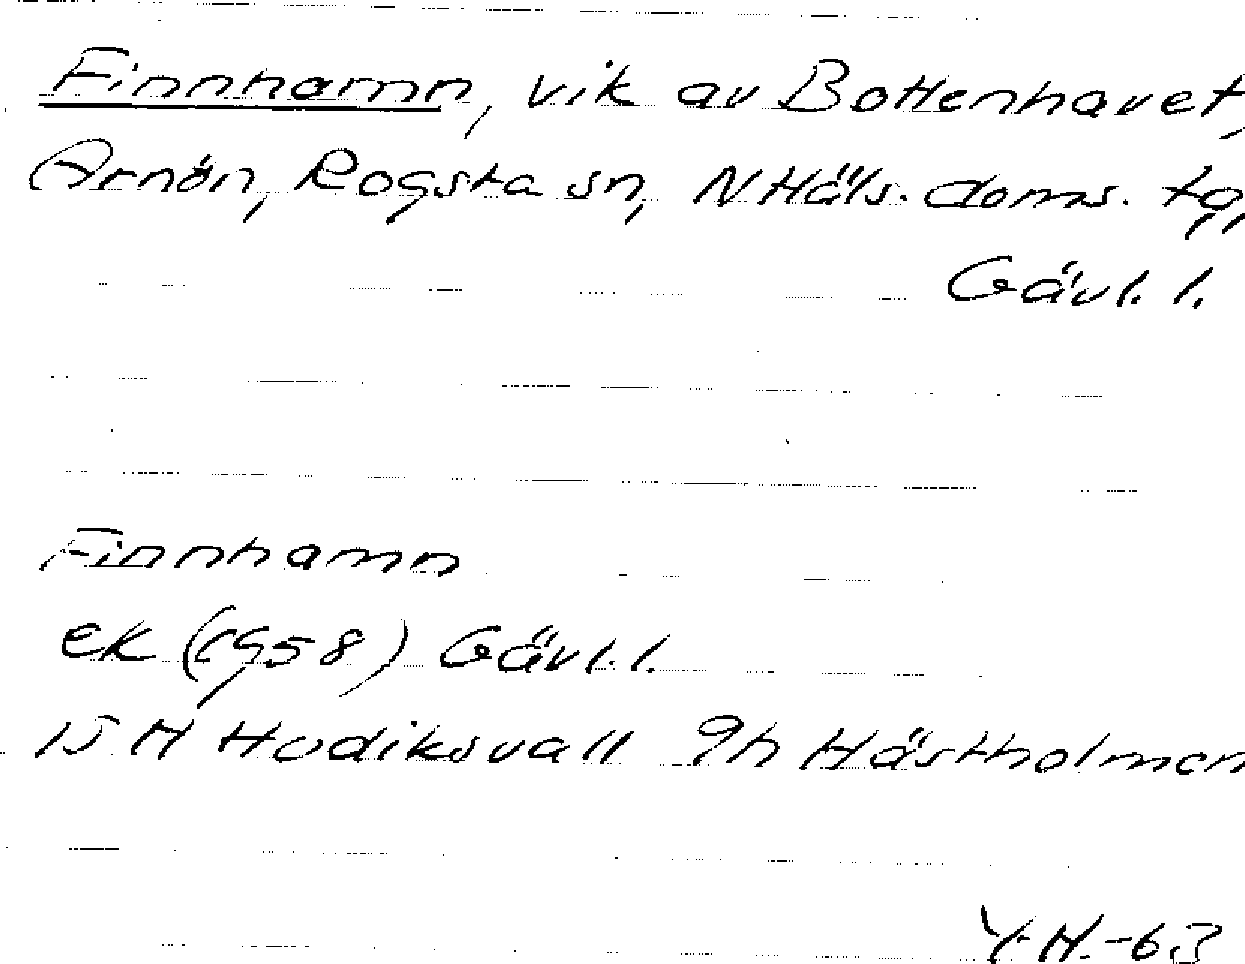 Finnhamn, vik av Bottenhavet,
Arnön, Rogsta sn, N Häls. doms. tg,
Gävl. l.
Finnhamn
ek (1958) Gävl. l.
15 H Hudiksvall 9h Hästholmen
Y.H.-63